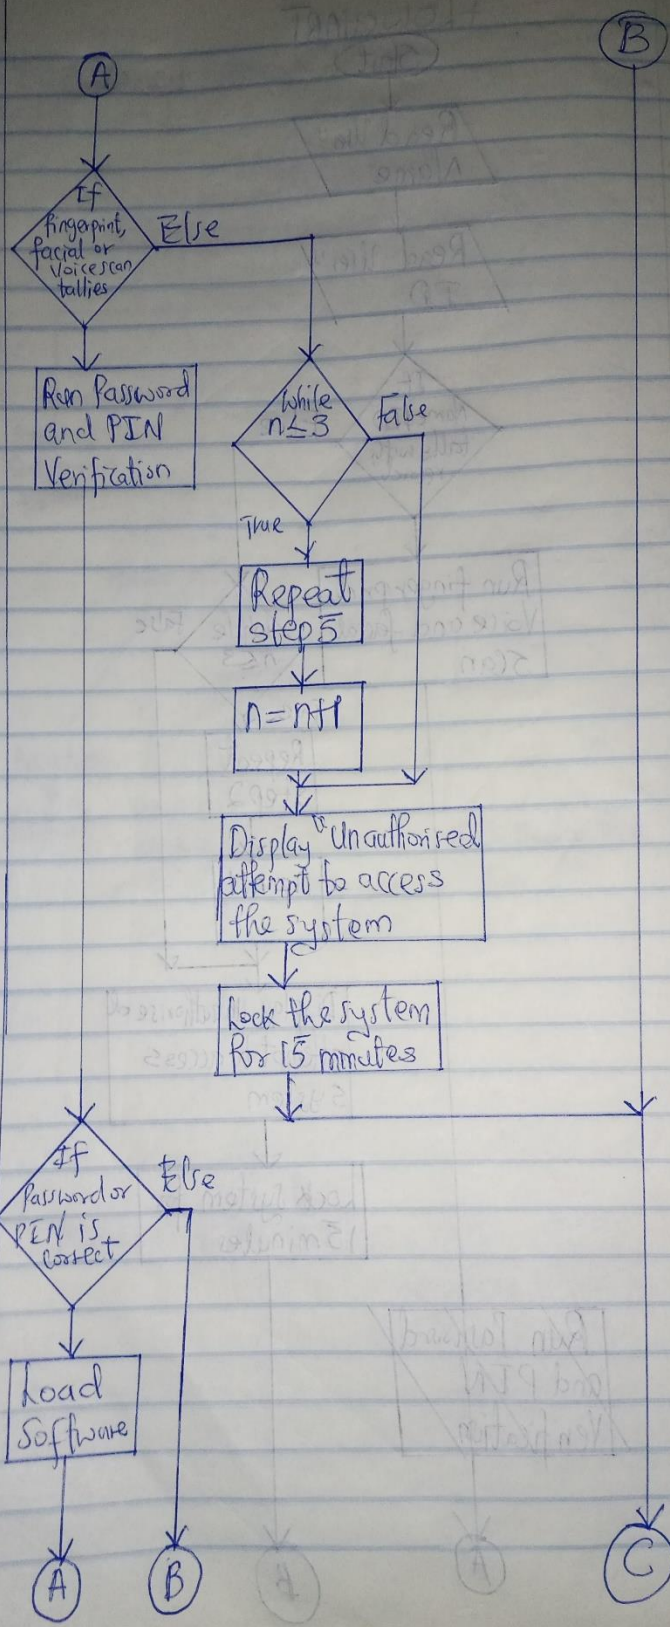 A
B
If
fingerprint,
facial or
Voice scan
tallies
Else
Run Password
and PIN
Verification
While
n≤3
False
True
Repeat
step 5
n=n+1
Display "Unauthorised
attempt to access
the system
Lock the system
for 15 minutes
If
Password or
PIN is
correct
Else
Load
Software
A
B
C